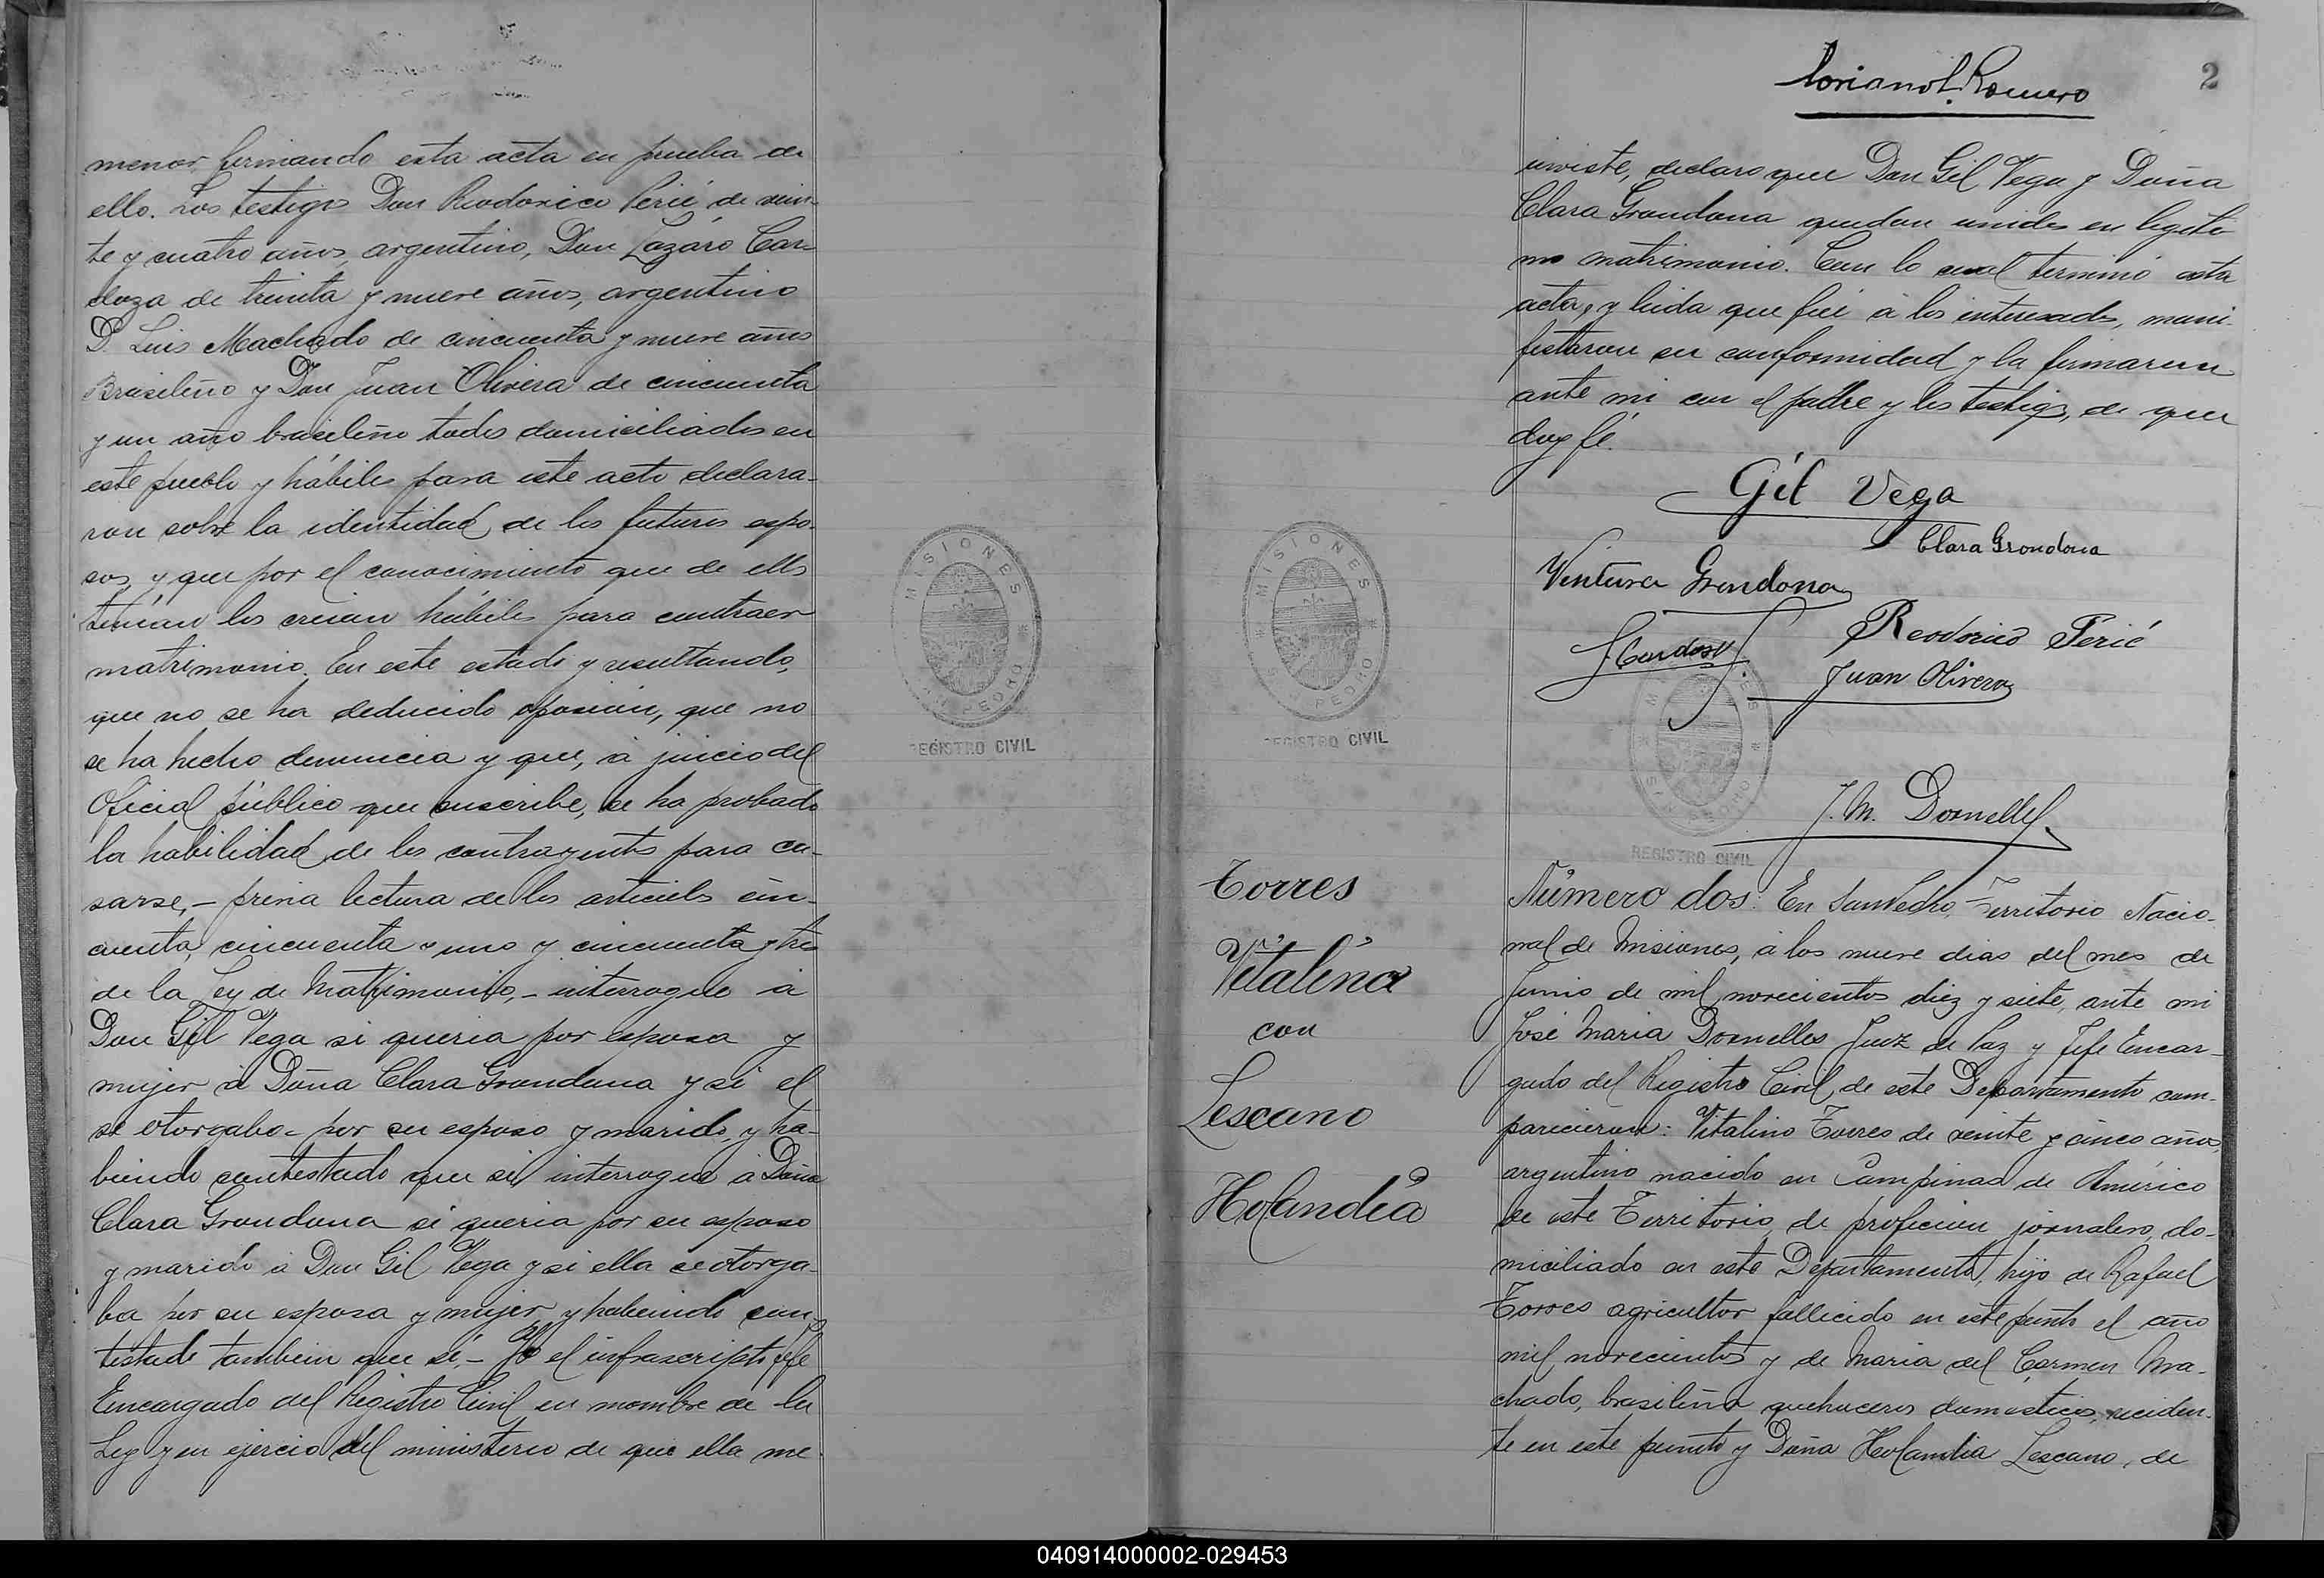 menor, firmando esta acta en prueba de
ello. Los testigos Don Reodorico Perié de vein
te y cuatro años, argentino, Don Lazáro Car-
doza de treinta y nueve años, argentino
D. Luis Machado de cincuenta y nueve años
Brasileño y Don Juan Olivera de cincuenta
y un año brasileño todos domiciliados en
este pueblo y hábiles para este acto declara-
ron sobre la identidad de los futuros espo-
sos, y que por el conocimiento que de ellos
tenían los creian hábiles para contraer
matrimonio. En este estado y resultando,
que no se ha deducido oposición, que no
se ha hecho denuncia y que, á juicio del
Oficial público que suscribe, se ha probado
la habilidad de los contrayentes para ca-
sarse, - previa lectura de los articulos cin-
cuenta, cincuenta y uno y cincuenta y tres
de la Ley de Matrimonio, - interrogué á
Don Gil Vega si queria por esposa y
mujer á Doña Clara Grondona y si el
se otorgaba por su esposo y marido, y ha-
biendo contestado que si, interrogué á Doña
Clara Grondona si queria por su esposo
y marido á Don Gil Vega y si ella se otorga-
ba por su esposa y mujer, y habiendo con-
testado tambien que sí, - Yo el infrascripto Jefe
Encargado del Registro Civil en nombre de la
Ley y en ejercio del ministerio de que ella me
MISIONES
SAN PEDRO
REGISTRO CIVIL
2
L. Romero
inviste, declaro que Don Gil Vega y Doña
Clara Grondona quedan unidos en legíti
mo matrimonio. Con lo cual terminó esta
acta, y leida que fué á los interesados, mani-
festaron su conformidad y la firmaron
ante mi con el padre y los testigos, de que
doy fé.
Gil Vega
Clara Grondona
Ventura Grondona
Reodorico Perié
L. Cardoso
Juan Olivera
MISIONES
SAN PEDRO
REGISTRO CIVIL
J. M. Dornelles
REGISTRO CIVIL
Torres
Vitalino
con
Lescano
Holandia
Número dos: En San Pedro, Territorio Nacio-
nal de Misiones, á los nueve dias del mes de
Junio de mil novecientos diez y siete, ante mi
José Maria Dornelles Juez de Paz y Jefe Encar-
gado del Registro Civil de este Departamento com-
parecieron: Vitalino Torres de veinte y cinco años,
argentino nacido en Campinas de Américo
de este Territorio, de profecion jornalero, do-
miciliado en este Departamento, hijo de Rafael
Torres agricultor fallecido en este punto el año
mil novecientos y de Maria del Carmen Ma-
chado, brasileña quehaceres domesticos, reciden-
te en este punto y Doña Holandia Lescano, de
040914000002-029453